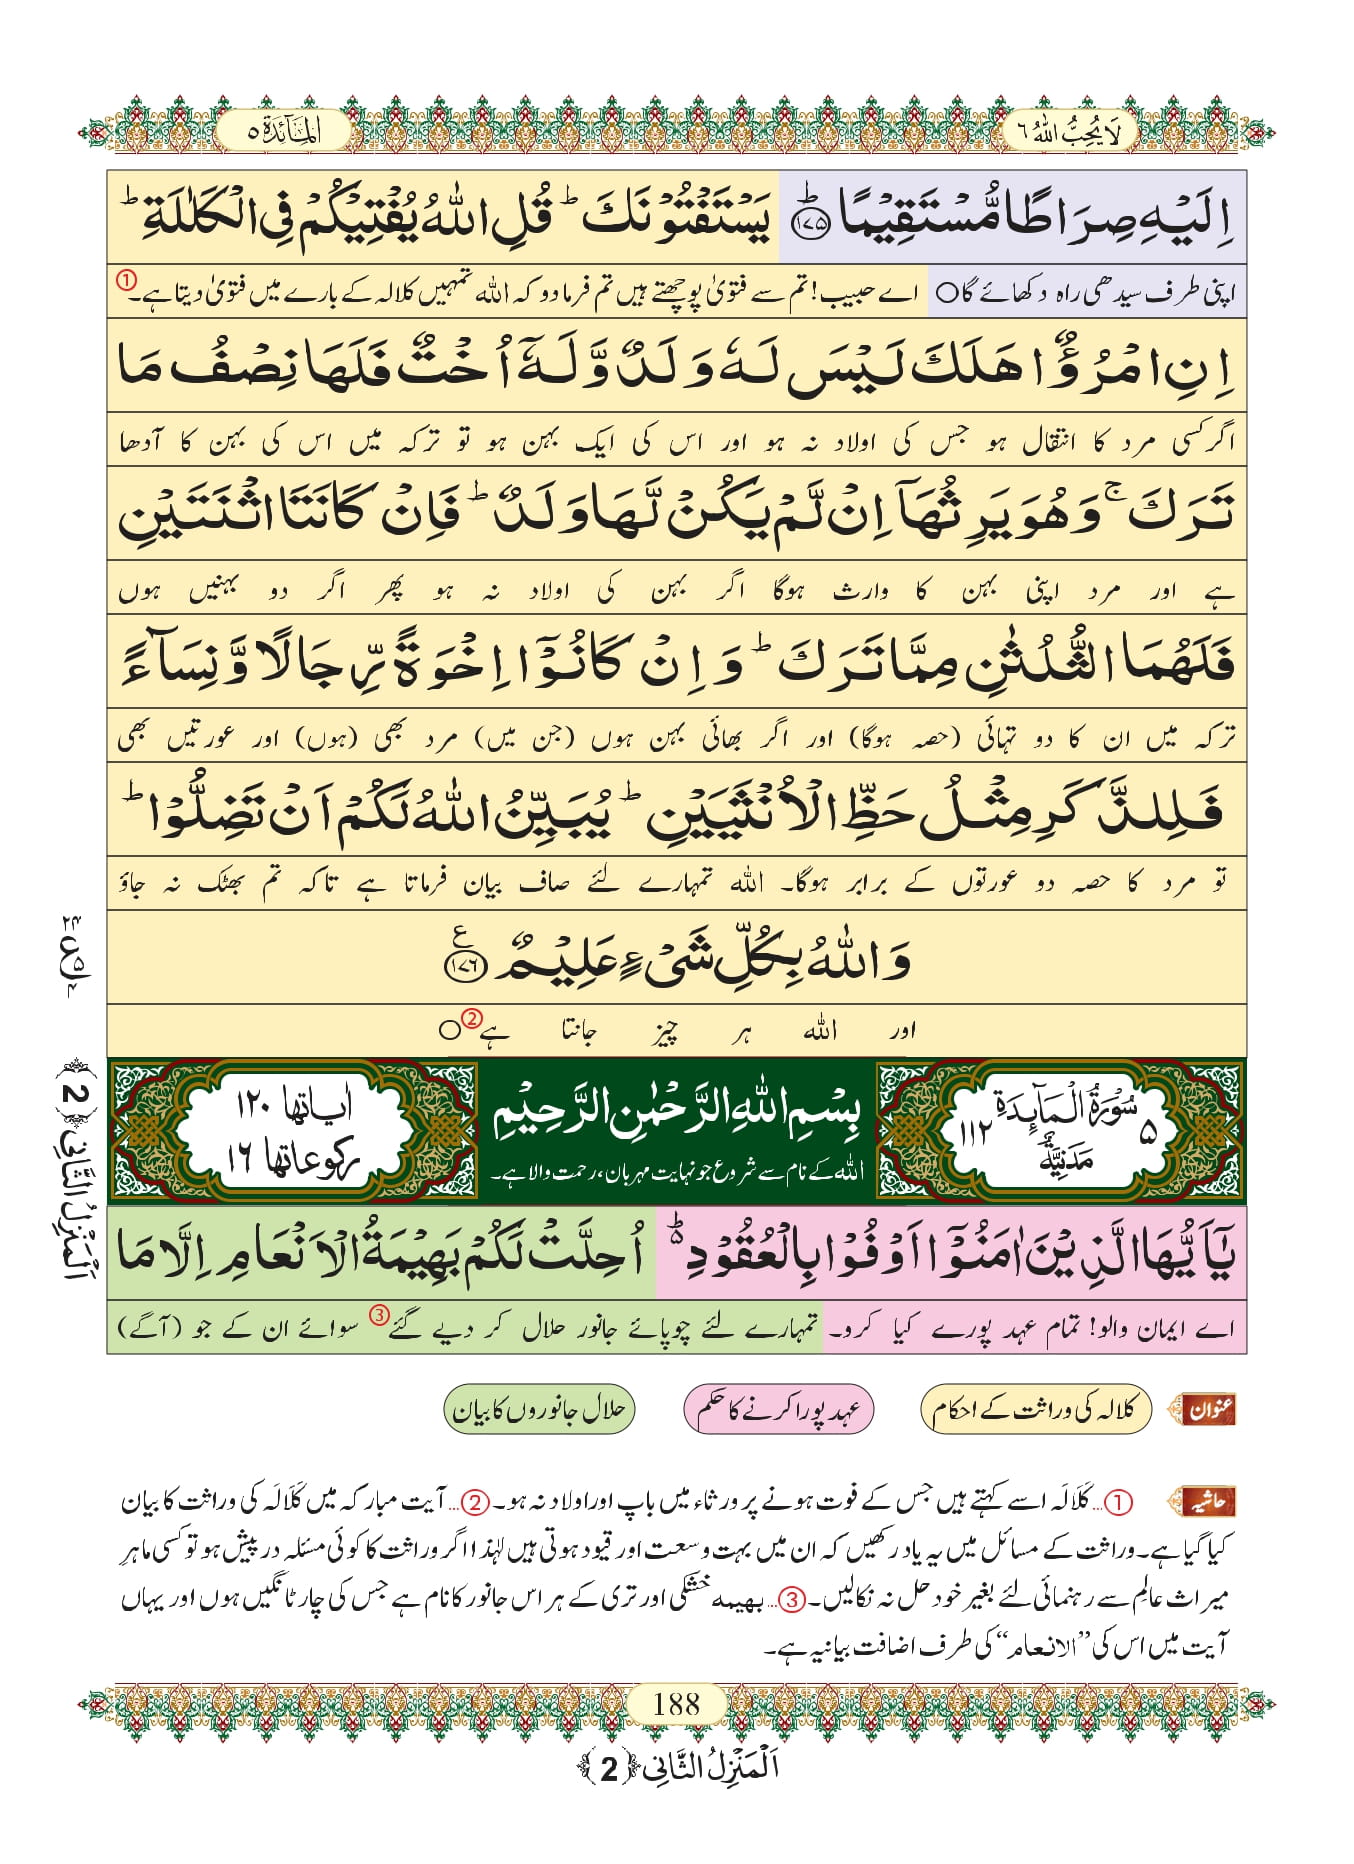 لَا یُحِبُّ اللّٰهُ ۶
اَلْمَآئِدَة ۵
اِلَیْهِ صِرَاطًا مُّسْتَقِیْمًاؕ۝۱۷۵ یَسْتَفْتُوْنَكَؕ قُلِ اللّٰهُ یُفْتِیْكُمْ فِی الْكَلٰلَةِؕ
اپنی طرف سیدھی راہ دکھائے گا○ اے حبیب! تم سے فتویٰ پوچھتے ہیں تم فرما دو کہ اللہ تمہیں کلالہ کے بارے میں فتویٰ دیتا ہے۔①
اِنِ امْرُؤٌا هَلَكَ لَیْسَ لَهٗ وَلَدٌ وَّ لَهٗۤ اُخْتٌ فَلَهَا نِصْفُ مَا
اگر کسی مرد کا انتقال ہو جس کی اولاد نہ ہو اور اس کی ایک بہن ہو تو ترکہ میں اس کی بہن کا آدھا
تَرَكَۚ وَ هُوَ یَرِثُهَاۤ اِنْ لَّمْ یَكُنْ لَّهَا وَلَدٌؕ فَاِنْ كَانَتَا اثْنَتَیْنِ
ہے اور مرد اپنی بہن کا وارث ہوگا اگر بہن کی اولاد نہ ہو پھر اگر دو بہنیں ہوں
فَلَهُمَا الثُّلُثٰنِ مِمَّا تَرَكَؕ وَ اِنْ كَانُوْۤا اِخْوَةً رِّجَالًا وَّ نِسَآءً
ترکہ میں ان کا دو تہائی (حصہ ہوگا) اور اگر بھائی بہن ہوں (جن میں) مرد بھی (ہوں) اور عورتیں بھی
فَلِلذَّكَرِ مِثْلُ حَظِّ الْاُنْثَیَیْنِؕ یُبَیِّنُ اللّٰهُ لَكُمْ اَنْ تَضِلُّوْاؕ
تو مرد کا حصہ دو عورتوں کے برابر ہوگا۔ اللہ تمہارے لئے صاف بیان فرماتا ہے تاکہ تم بھٹک نہ جاؤ
وَ اللّٰهُ بِكُلِّ شَیْءٍ عَلِیْمٌ۠۝۱۷۶
اور اللہ ہر چیز جانتا ہے②○
۵ سُوْرَةُ الْمَآئِدَةِ مَدَنِیَّةٌ ۱۱۲
بِسْمِ اللّٰهِ الرَّحْمٰنِ الرَّحِیْمِ
اللہ کے نام سے شروع جو نہایت مہربان، رحمت والا ہے۔
اٰیاتھا ۱۲۰
رکوعاتھا ۱۶
یٰۤاَیُّهَا الَّذِیْنَ اٰمَنُوْۤا اَوْفُوْا بِالْعُقُوْدِ۬ؕ اُحِلَّتْ لَكُمْ بَهِیْمَةُ الْاَنْعَامِ اِلَّا مَا
اے ایمان والو! تمام عہد پورے کیا کرو۔ تمہارے لئے چوپائے جانور حلال کر دیے گئے③ سوائے ان کے جو (آگے)
عنوان کلالہ کی وراثت کے احکام عہد پورا کرنے کا حکم حلال جانوروں کا بیان
حاشیہ ①... کَلَالَہ اسے کہتے ہیں جس کے فوت ہونے پر ورثاء میں باپ اور اولاد نہ ہو۔ ②... آیت مبارکہ میں کَلَالَہ کی وراثت کا بیان
کیا گیا ہے۔ وراثت کے مسائل میں یہ یاد رکھیں کہ ان میں بہت وسعت اور قیود ہوتی ہیں لہٰذا اگر وراثت کا کوئی مسئلہ درپیش ہو تو کسی ماہرِ
میراث عالِم سے رہنمائی لئے بغیر خود حل نہ نکالیں۔ ③... بھیمہ خشکی اور تری کے ہر اس جانور کا نام ہے جس کی چار ٹانگیں ہوں اور یہاں
آیت میں اس کی ”الانعام“ کی طرف اضافت بیانیہ ہے۔
188
اَلْمَنْزِلُ الثَّانِی ﴿2﴾
اَلْمَنْزِلُ الثَّانِی ﴿2﴾